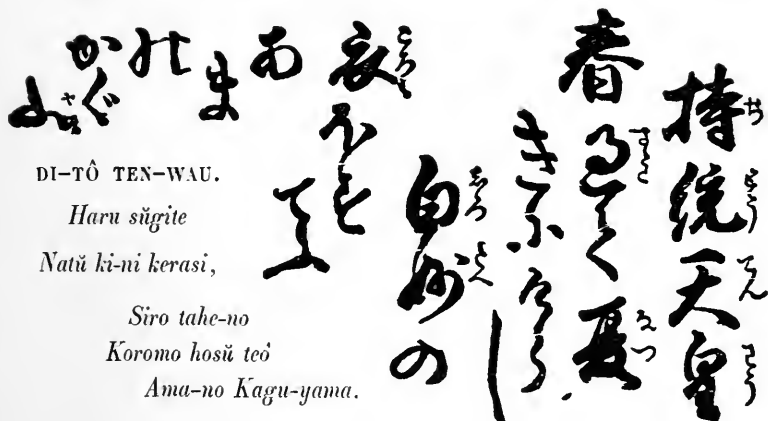 持統天皇
春過て夏
きにけらし
白妙の
衣ほす
てふ
あまの
かぐ山
DI–TÔ TEN–WAU.
Haru sŭgite
Natŭ ki-ni kerasi,
Siro tahe-no
Koromo hosŭ teô
Ama-no Kagu-yama.